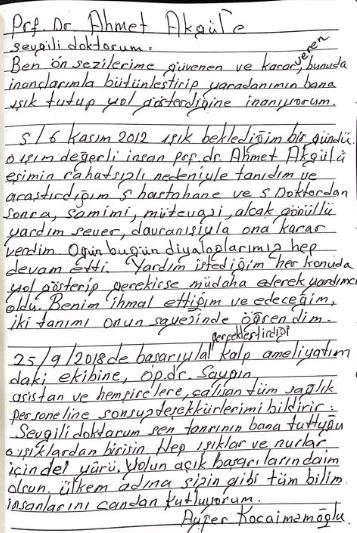 Prf. Dr Ahmet Akgül'e
sevgili doktorum.
Ben ön sezilerime güvenen ve karar veren, bunuda
inançlarımla bütünleştirip yaradanımın bana
ışık tutup yol gösterdiğine inanıyorum.
5/6 Kasım 2012 ışık beklediğim bir gündü.
o ışım değerli insan prf.dr. Ahmet Akgülü
eşimin rahatsızlı nedeniyle tanıdım ve
araştırdığım 5 hastahane ve 5 Doktordan
sonra, samimi, mütevazi, alçak gönüllü
yardım sever, davranışıyla ona karar
verdim O gün bugün diyaloglarımız hep
devam etti. Yardım istediğim her konuda
yol gösterip gerekirse müdaha ederek yardımcı
oldu. Benim ihmal ettiğim ve edeceğim,
iki tanımı onun sayesinde öğrendim.
25/9/2018 de başarıyla gerçekleştirdiği kalp ameliyatım
daki ekibine, op.dr. Saygın
asistan ve hemşirelere, çalışan tüm sağlık
personeline sonsuz teşekkürlerimi bildirir.
Sevgili doktorum sen tanrının bana tuttuğu
o ışıklardan birisin Hep ışıklar ve nurlar
içinde yürü. Yolun açık başarıların daim
olsun, ülkem adına sizin gibi tüm bilim
insanlarını candan kutluyorum.
Ayfer Kocaimamoğlu